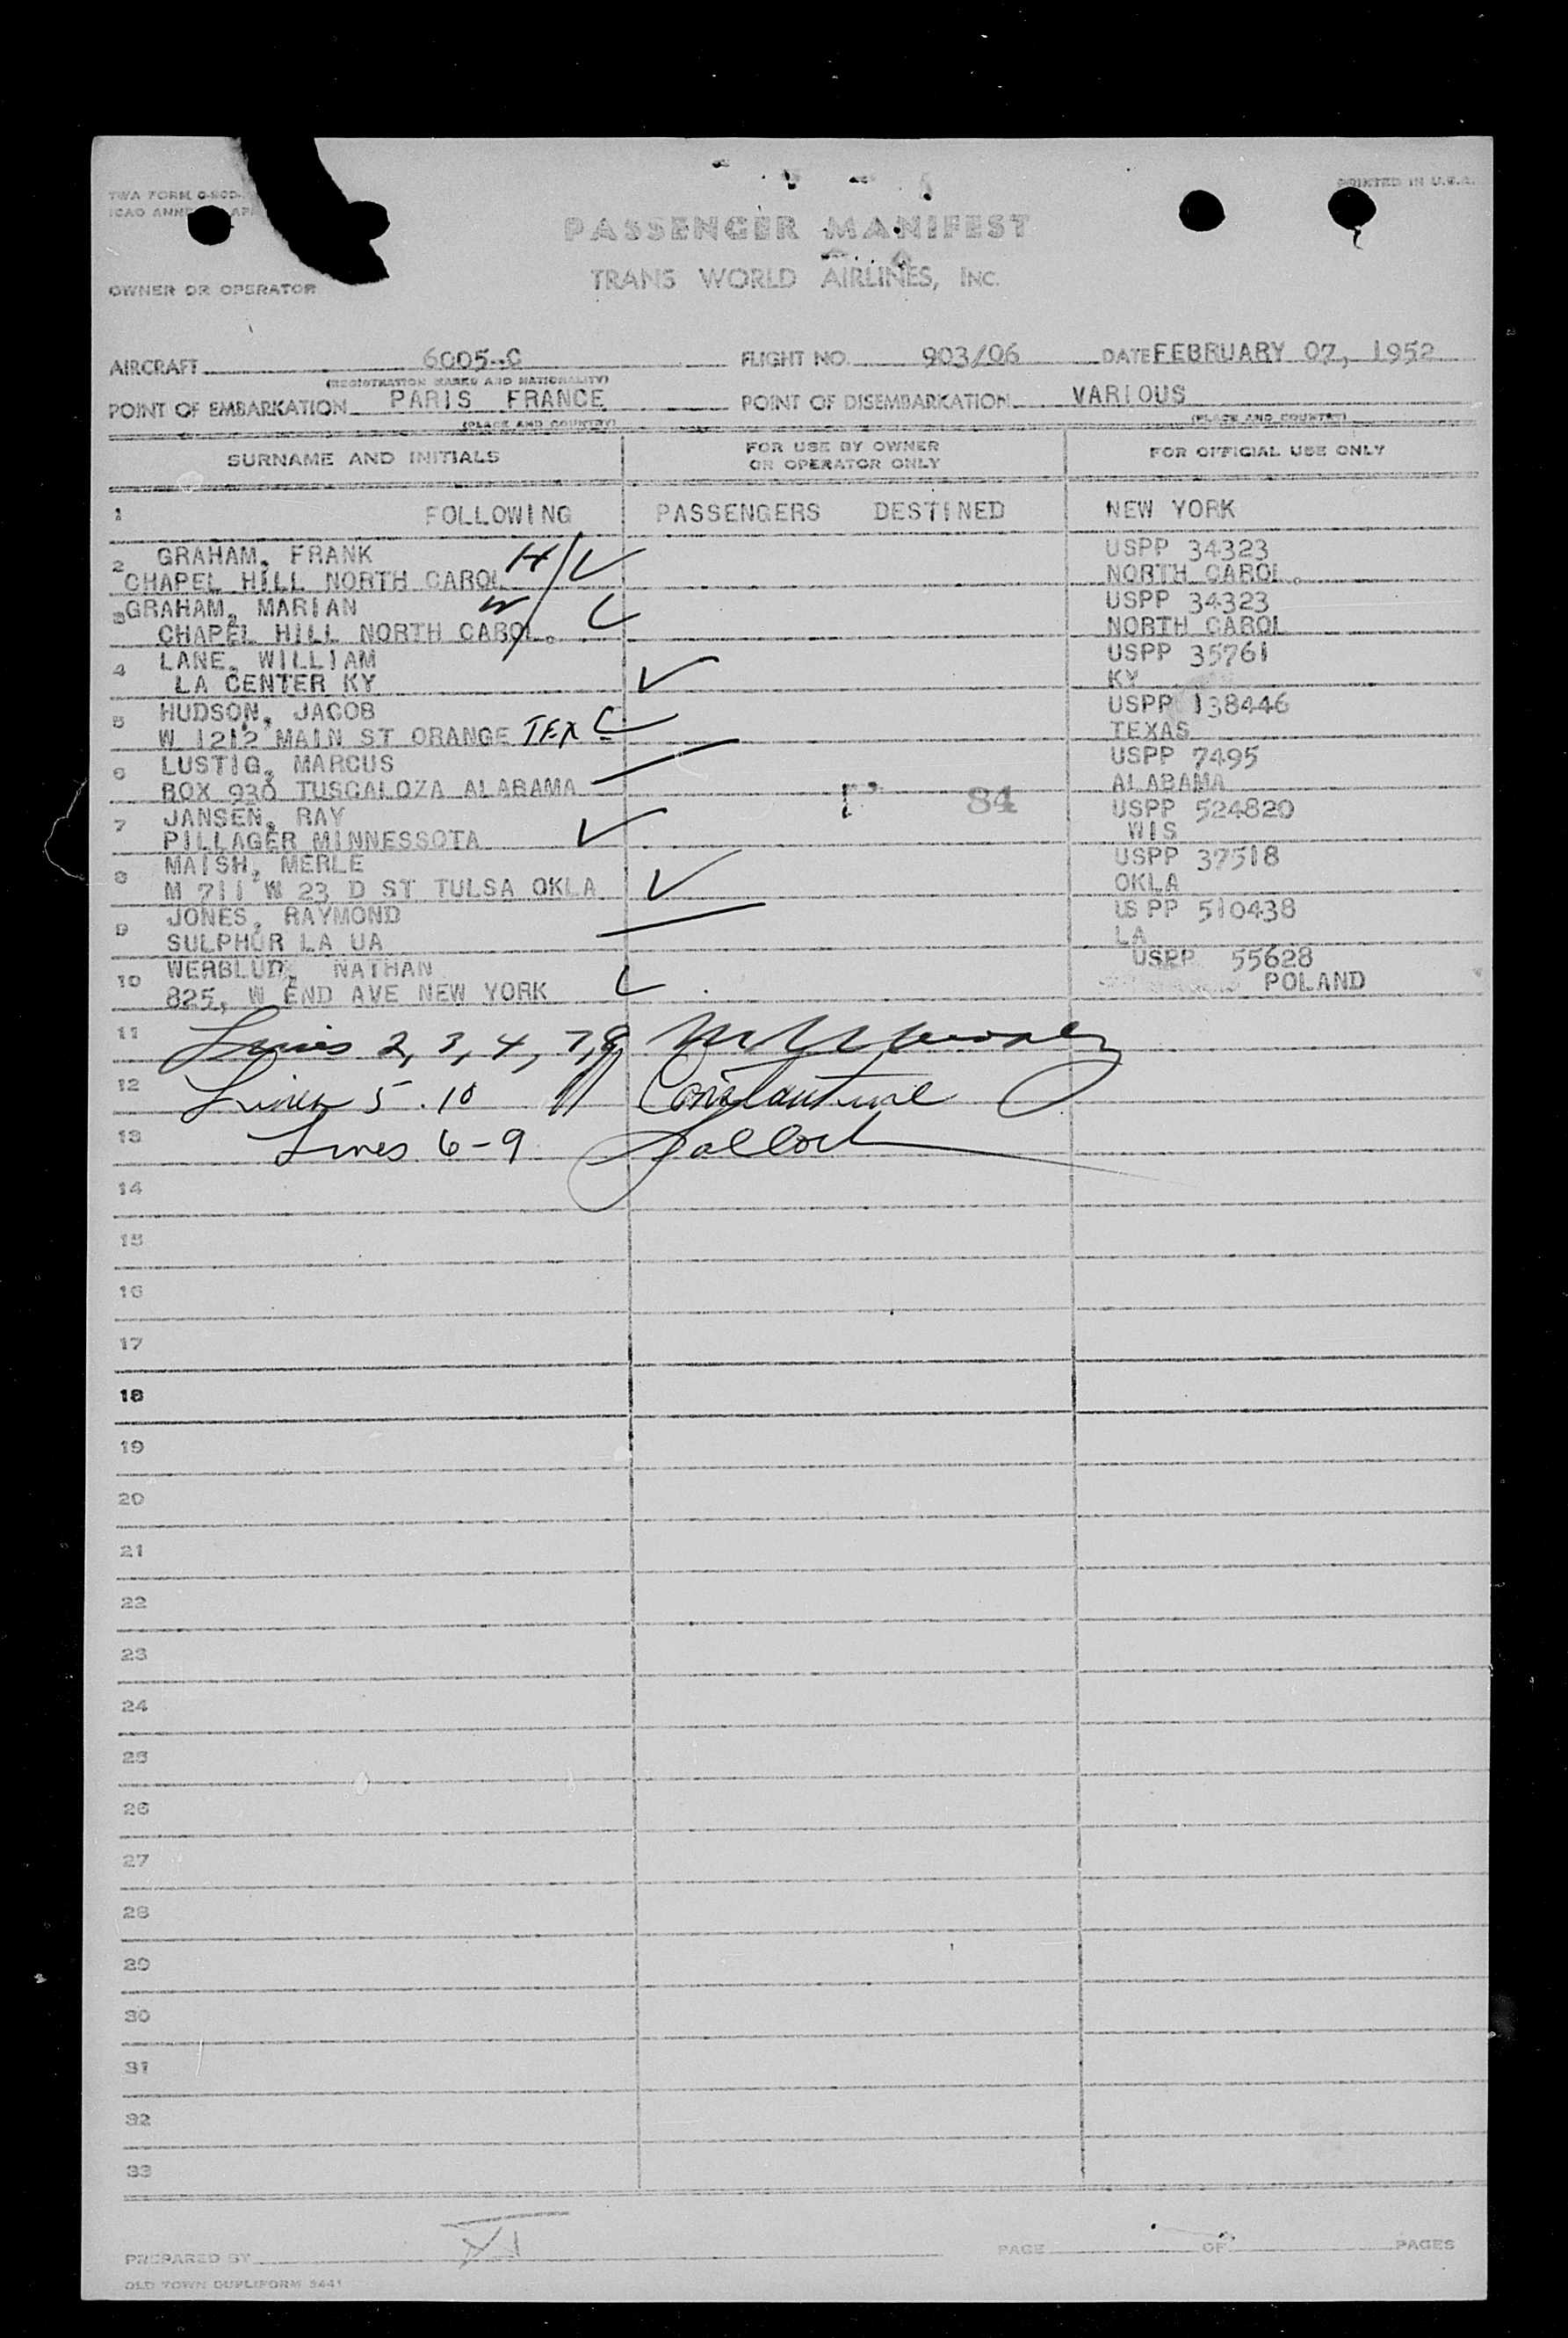 TWA FORM
PRINTED IN U.S.A.
ICAO ANNE
PASSENGER MANIFEST
TRANS WORLD AIRLINES, INC.
OWNER OR OPERATOR
AIRCRAFT 6005-C FLIGHT NO. 903/06 DATE FEBRUARY 07, 1952
(REGISTRATION MARKS AND NATIONALITY)
POINT OF EMBARKATION PARIS FRANCE POINT OF DISEMBARKATION VARIOUS
(PLACE AND COUNTRY) (PLACE AND COUNTRY)
SURNAME AND INITIALS FOR USE BY OWNER OR OPERATOR ONLY FOR OFFICIAL USE ONLY
1 FOLLOWING PASSENGERS DESTINED NEW YORK
2 GRAHAM, FRANK H USPP 34323
CHAPEL HILL NORTH CAROL NORTH CAROL.
3 GRAHAM, MARIAN W USPP 34323
CHAPEL HILL NORTH CAROL. NORTH CAROL
4 LANE, WILLIAM USPP 35761
LA CENTER KY KY
5 HUDSON, JACOB USPP 138446
W 1212 MAIN ST ORANGE TEX C TEXAS
6 LUSTIG, MARCUS USPP 7495
BOX 930 TUSCALOZA ALABAMA ALABAMA
84
7 JANSEN, RAY USPP 524820
PILLAGER MINNESSOTA WIS
8 MAISH, MERLE USPP 37518
M 711 W 23 D ST TULSA OKLA OKLA
9 JONES, RAYMOND US PP 510438
SULPHUR LA UA LA
10 WERBLUD, NATHAN USPP 55628
825, W END AVE NEW YORK POLAND
11 Lines 2, 3, 4, 7, 8
12 Lines 5 . 10 Constantine
13 Lines 6-9
14
15
16
17
18
19
20
21
22
23
24
25
26
27
28
29
30
31
32
33
XI
PREPARED BY PAGE OF PAGES
OLD TOWN DUPLIFORM 5441